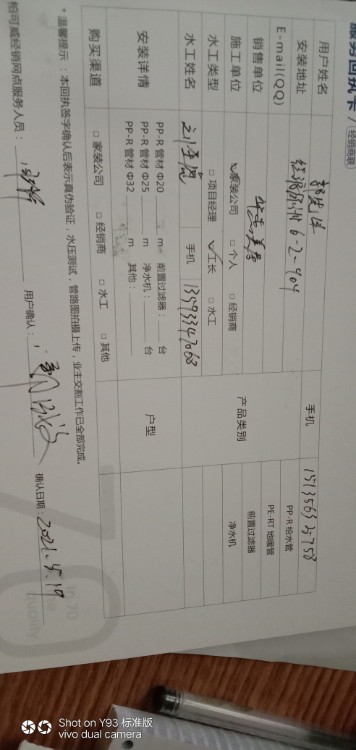 服务回执卡 / 经销商联
用户姓名 手机 15135632758
安装地址 6-2-904 PP-R 给水管
E-mail(QQ) PE-RT 地暖管
销售单位 产品类别 前置过滤器
施工单位 ☑家装公司 □个人 □经销商 净水机
水工类型 □项目经理 ☑工长 □水工
水工姓名 刘 手机 13593347068
安装详情 PP-R 管材 Φ20 m 前置过滤器： 台 户型
PP-R 管材 Φ25 m 净水机： 台
PP-R 管材 Φ32 m 其他：
购买渠道 □家装公司 □经销商 □水工 □其他
* 温馨提示：本回执签字确认后表示真伪验证，水压测试，管路图拍摄上传，业主交割工作已全部完成。
柏司威经销网点服务人员： 用户确认： 确认日期：2021.5.19
Quality
Shot on Y93 标准版
vivo dual camera